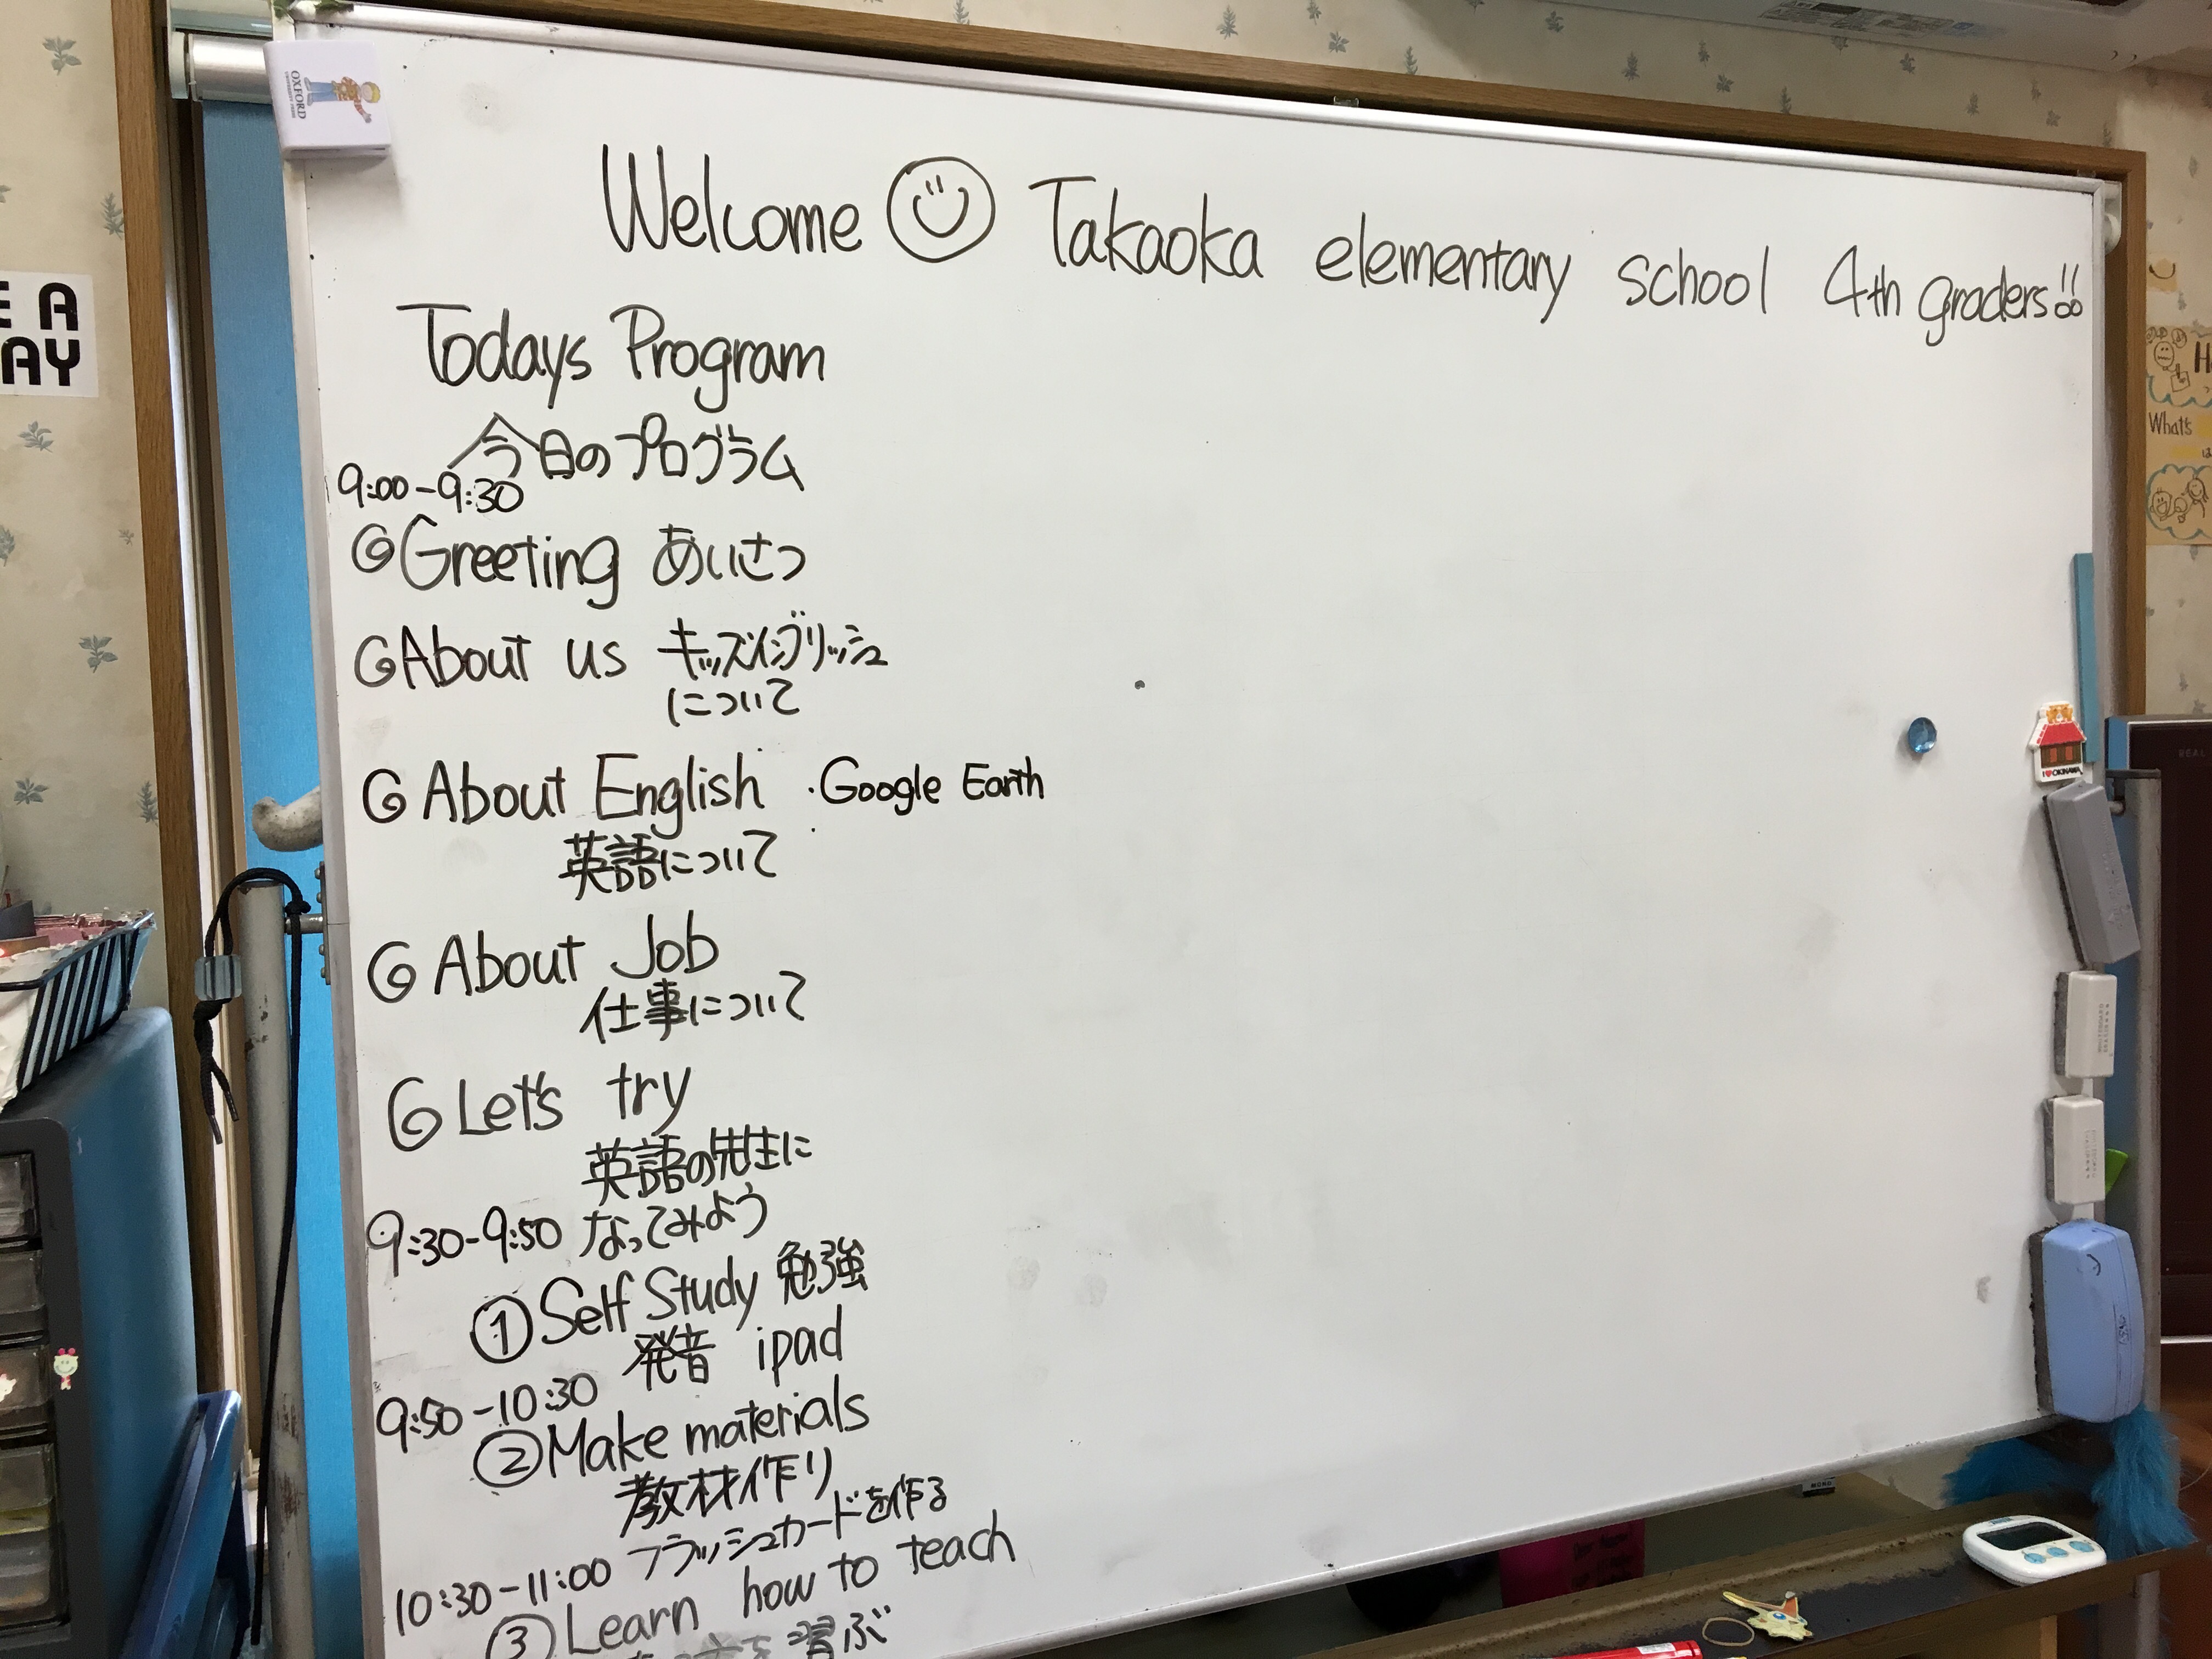 OXFORD
E A
AY
Welcome Takaoka elementary school 4th graders!!
Todays Program
今日のプログラム
9:00-9:30
Greeting あいさつ
About us キッズイングリッシュ
について
About English ・Google Earth
英語について
About Job
仕事について
Let's try
英語の先生に
9:30-9:50 なってみよう
①Self Study 勉強
発音 ipad
9:50-10:30
②Make materials
教材作り
フラッシュカードを作る
10:30-11:00
③Learn how to teach
を習ぶ
What's
I♥OKINAWA